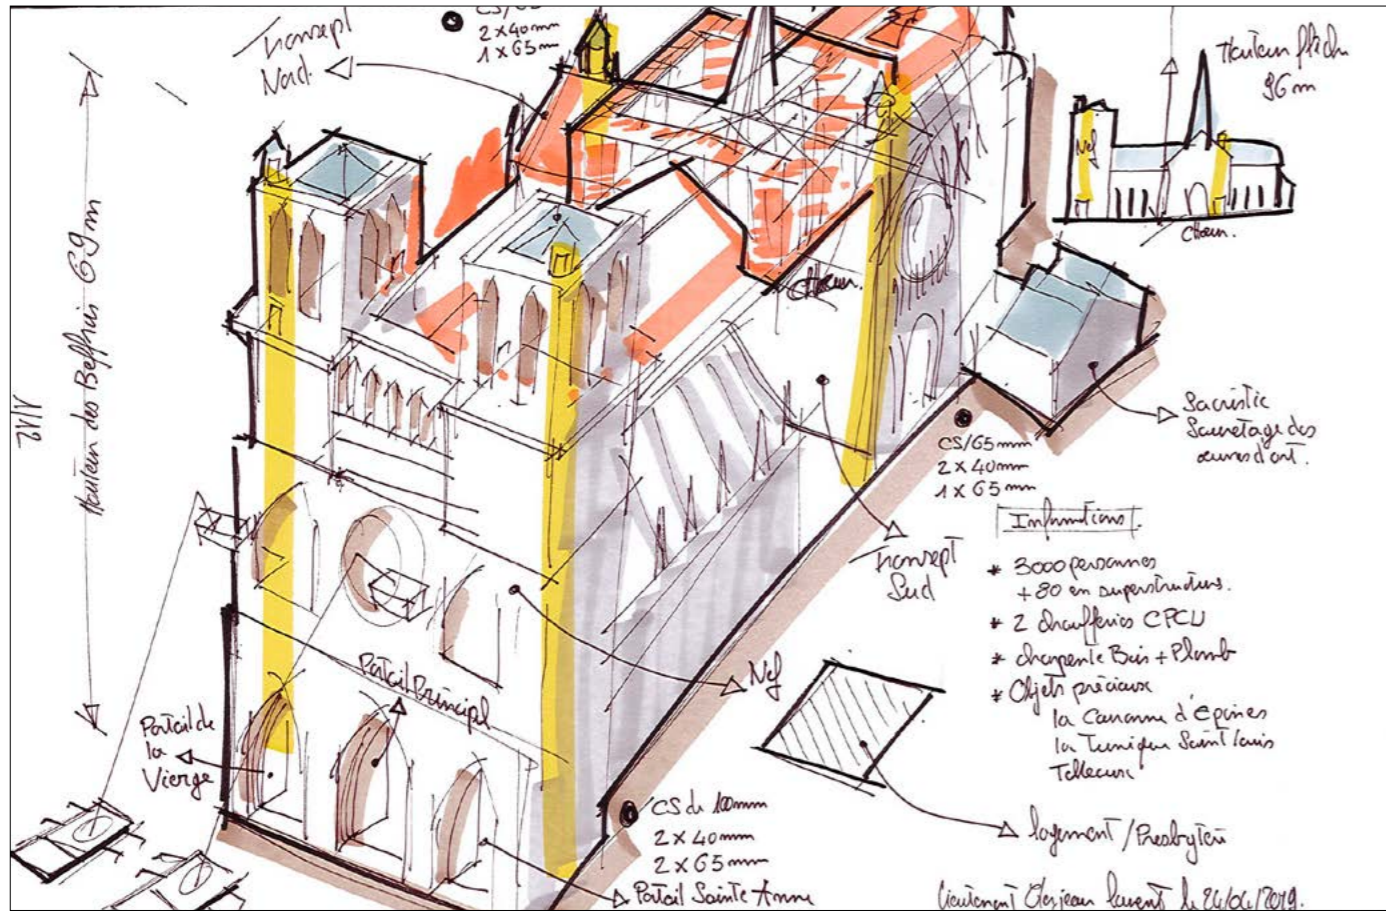 Transept
Nord
CS/65
2 x 40mm
1 x 65m
Hauteur flèche
96 m
Nef
Chœur.
Hauteur des Beffrois 69 m
Chœur.
Sacristie
Sauvetage des
œuvres d'art.
CS/65mm
2 x 40mm
1 x 65mm
Informations.
* 3000 personnes
+ 80 en superstructure.
* 2 chaufferies CPCU
* charpente Bois + Plomb
* Objets précieux
la Couronne d'épines
la Tunique Saint Louis
Tableaux
Transept
Sud
Nef
Portail Principal
Portail de
la
Vierge
CS de 100mm
2 x 40mm
2 x 65mm
Portail Sainte Anne
logement/Presbytère
Lieutenant Clerjeau Laurent le 24/04/2019.